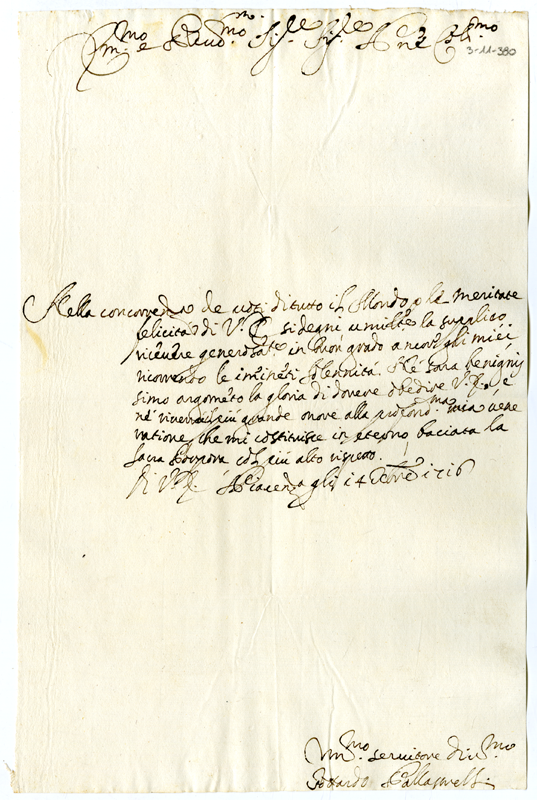 Em.mo e Reud.mo Sig.re Sig.re P.ne Col.mo
3-11-380
Nella concorrenza de uoti di tuto il Mondo p le meritate
felicità di V. E. si degni umilte la supplico
riceuere generosate in buon grado ancor gli miei
ricorrendo le iminēti solennità. Ne sara benignis
simo argomēto la gloria di douere obedire V. E. e
ne uiuerà il più grande onore alla profond.ma mia uene
ratione, che mi costituisce in eterno, baciata la
sacra Porpora col più alto rispetto.
Di V. E. Piacenza gli 14 Xbre 1716
Um.mo seruitore diu.mo